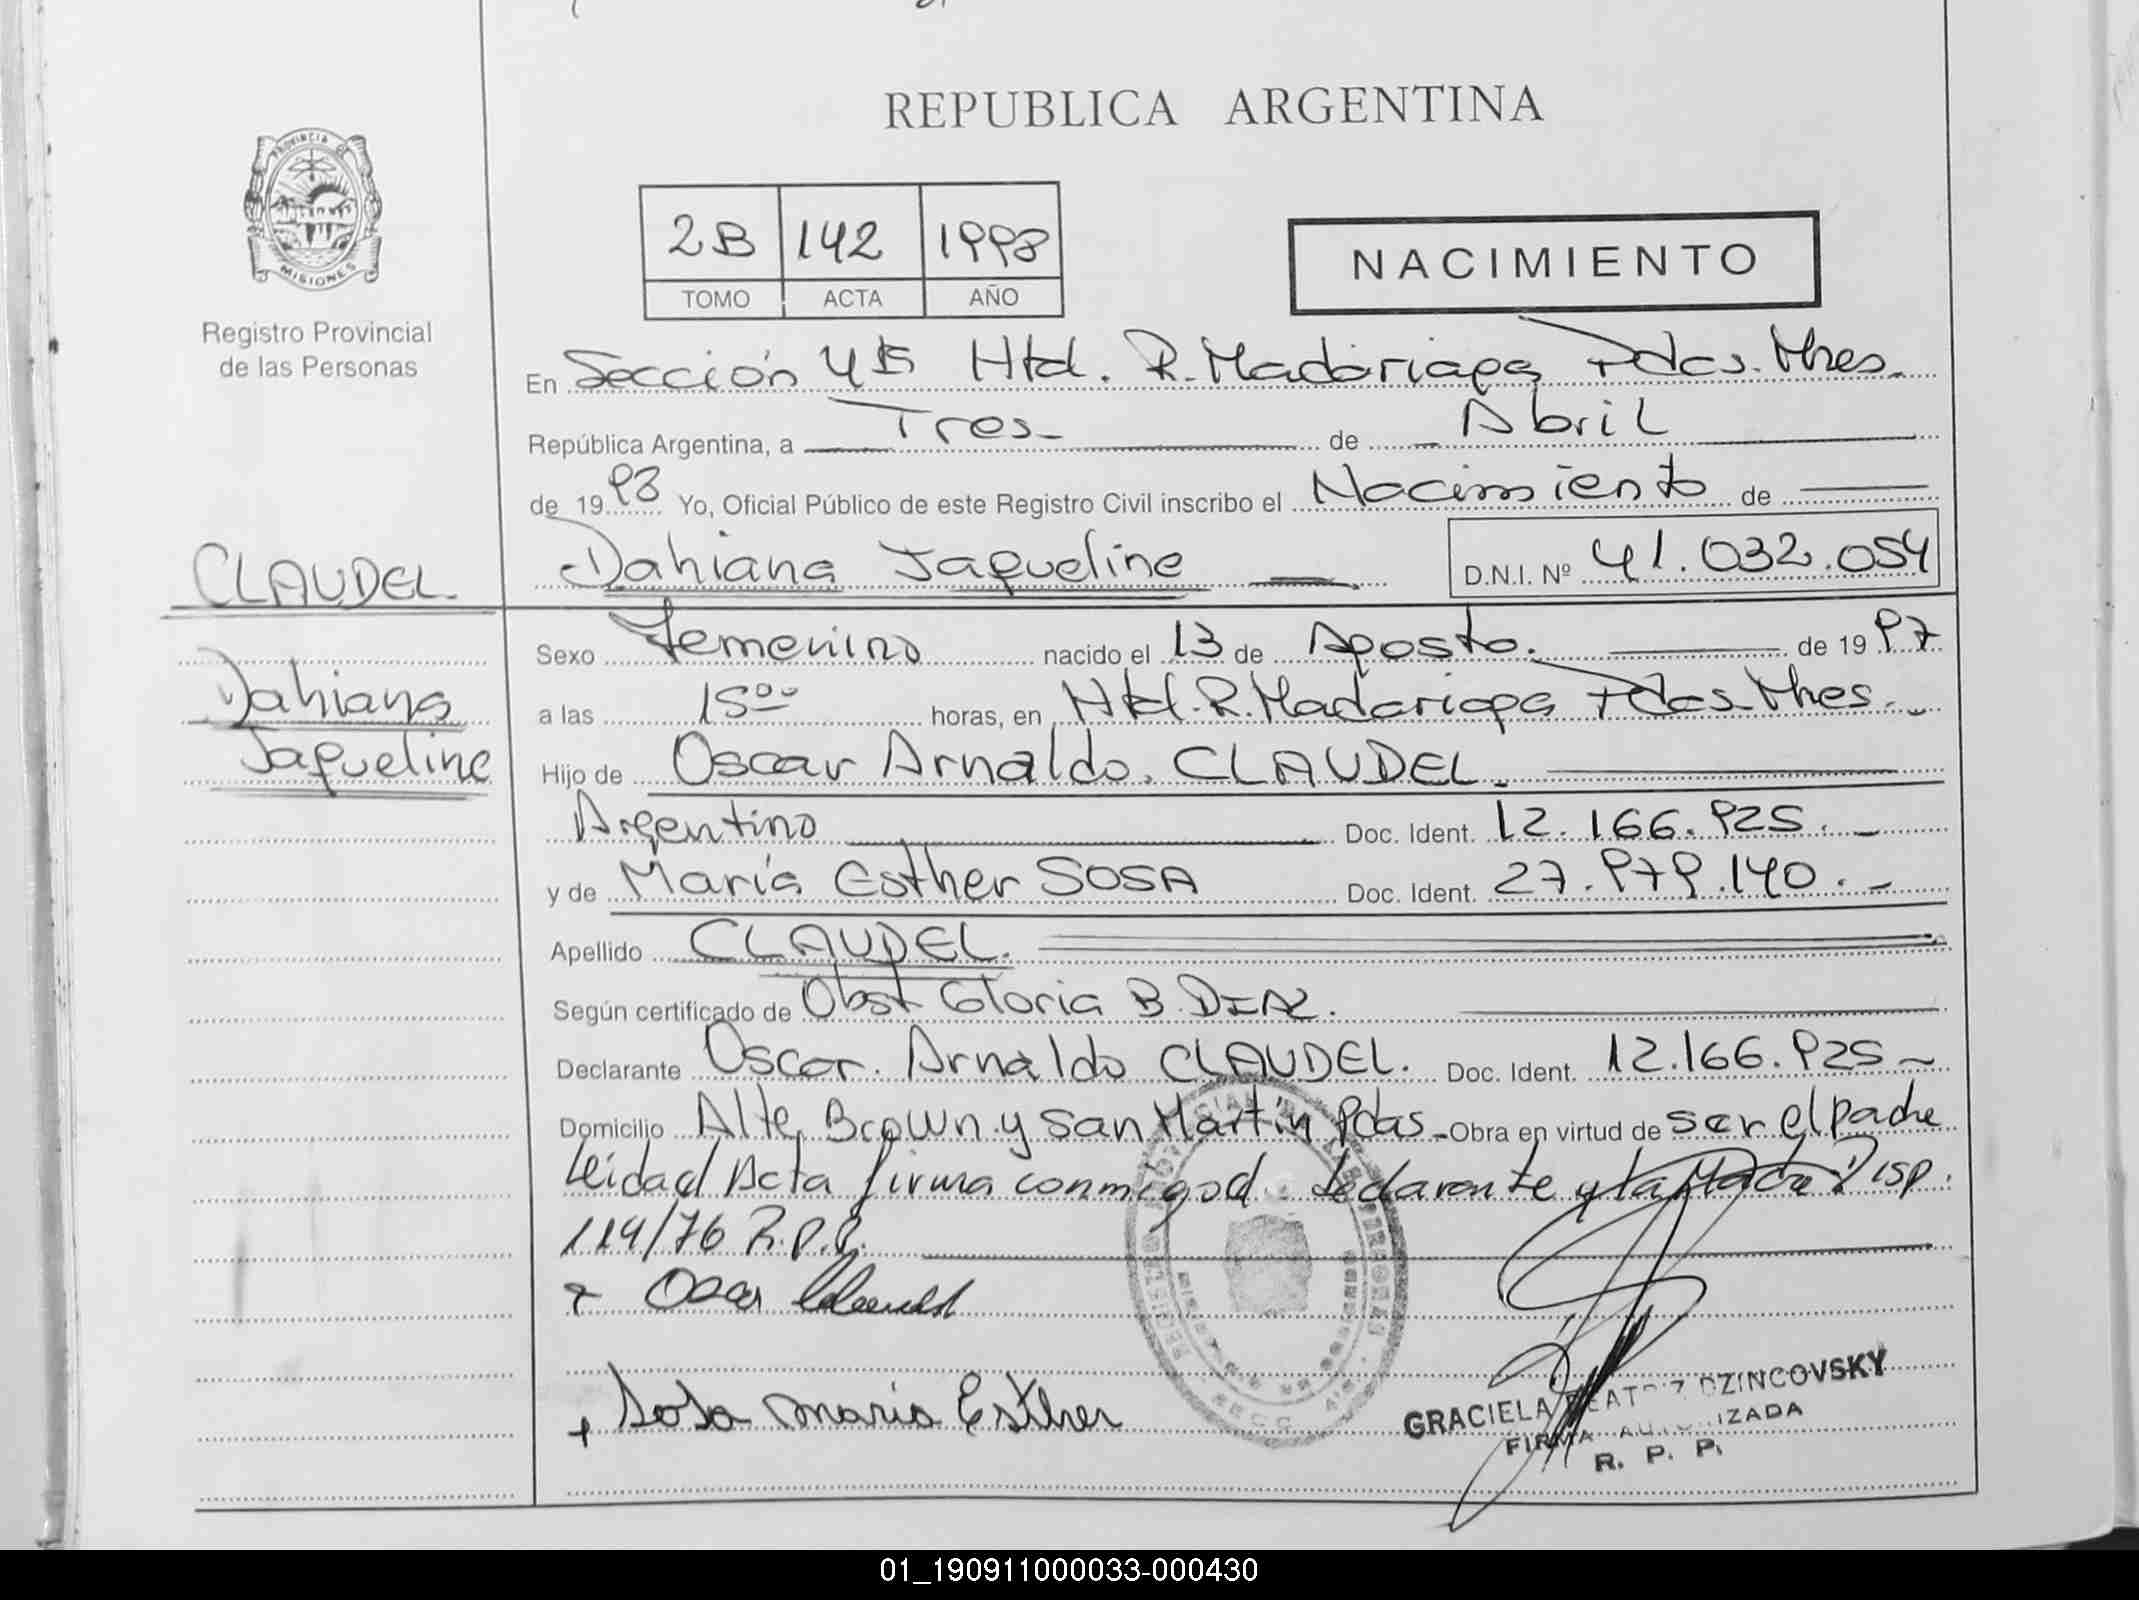 REPUBLICA ARGENTINA
PROVINCIA DE
MISIONES
Registro Provincial
de las Personas
2B 142 1998
TOMO ACTA AÑO
NACIMIENTO
En Sección 4ta Htal. R. Madariaga Pdas. Mnes.
República Argentina, a Tres de Abril
de 1998 Yo, Oficial Público de este Registro Civil inscribo el Nacimiento de
CLAUDEL Dahiana Jaqueline D.N.I. Nº 41.032.054
Sexo Femenino nacido el 13 de Agosto. de 1997
Dahiana
a las 15 00 horas, en Htal. R. Madariaga Pdas. Mnes.
Jaqueline
Hijo de Oscar Arnaldo. CLAUDEL
Argentino Doc. Ident. 12.166.925.
y de María Esther SOSA Doc. Ident. 27.979.140.
Apellido CLAUDEL.
Según certificado de Obst Gloria B. DIAZ.
Declarante Oscar. Arnaldo CLAUDEL. Doc. Ident. 12.166.925
Domicilio Alte Brown y San Martín Pdas Obra en virtud de ser el padre
Leida el Acta firma conmigo el declarante y la Madre Disp.
114/76 R.P.P.
Oscar Claudel
Sosa Maria Esther
GRACIELA BEATRIZ DZINCOVSKY
FIRMA AUTORIZADA
R. P. P.
01_190911000033-000430